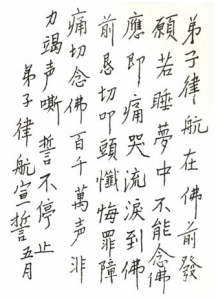 弟子律航在佛前發
願若睡夢中不能念佛
應即痛哭流淚到佛
前恳切叩頭懺悔罪障
痛切念佛百千萬声非
力竭声嘶誓不停止
弟子律航宣誓五月